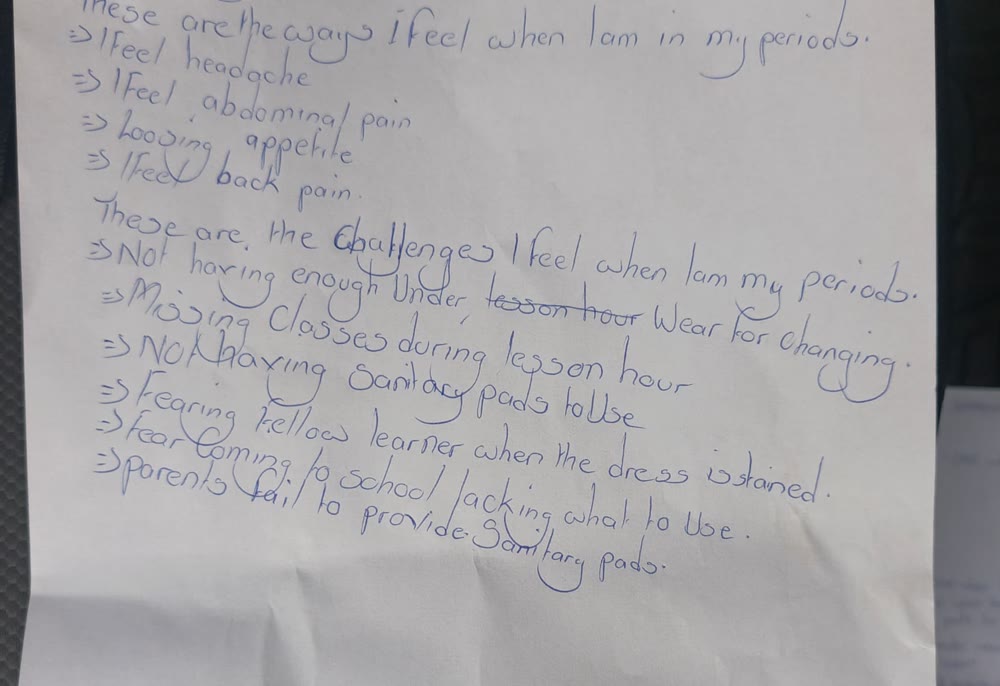 These are the ways I feel when I am in my periods.
⇒ I feel headache
⇒ I Feel abdominal pain
⇒ Loosing appetite
⇒ I feel back pain.
These are the Challenges I feel when I am my periods.
⇒ Not having enough Under, lesson hour Wear for changing.
⇒ Missing Classes during lesson hour
⇒ Not having Sanitary pads to Use
⇒ Fearing Fellow learner when the dress is stained.
⇒ Fear Coming to school lacking what to Use.
⇒ parents fail to provide Sanitary pads.